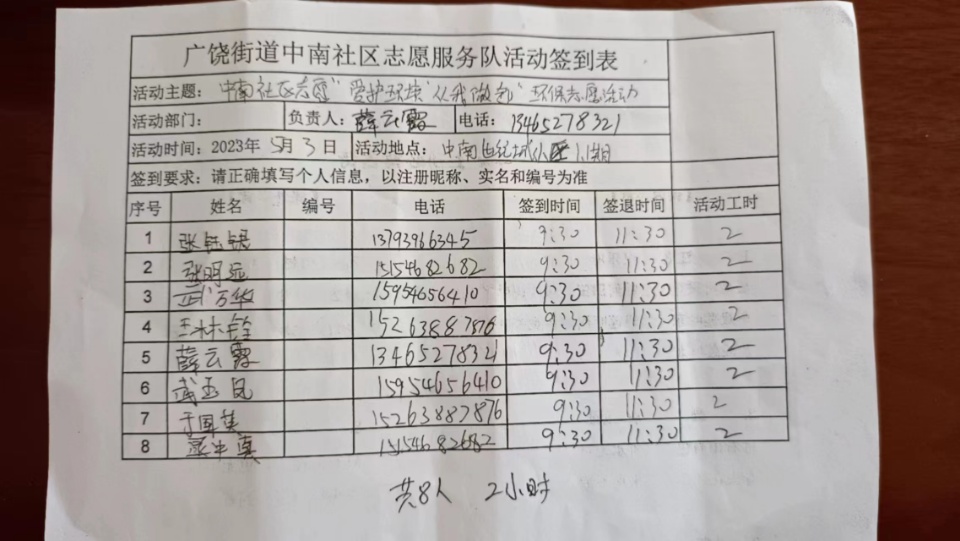 广饶街道中南社区志愿服务队活动签到表
活动主题：中南社区志愿"爱护环境"从我做起"环保志愿活动
活动部门： 负责人：薛云霞 电话：13465278321
活动时间：2023年5月3日 活动地点：中南世纪城小区1期
签到要求：请正确填写个人信息，以注册昵称、实名和编号为准
序号 姓名 编号 电话 签到时间 签退时间 活动工时
1 张 13793966345 9:30 11:30 2
2 张明远 15154682682 9:30 11:30 2
3 武万华 15954656410 9:30 11:30 2
4 王林 15263887876 9:30 11:30 2
5 薛云霞 13465278321 9:30 11:30 2
6 武玉凤 15954656410 9:30 11:30 2
7 于国英 15263887876 9:30 11:30 2
8 15154682682 9:30 11:30 2
共8人 2小时